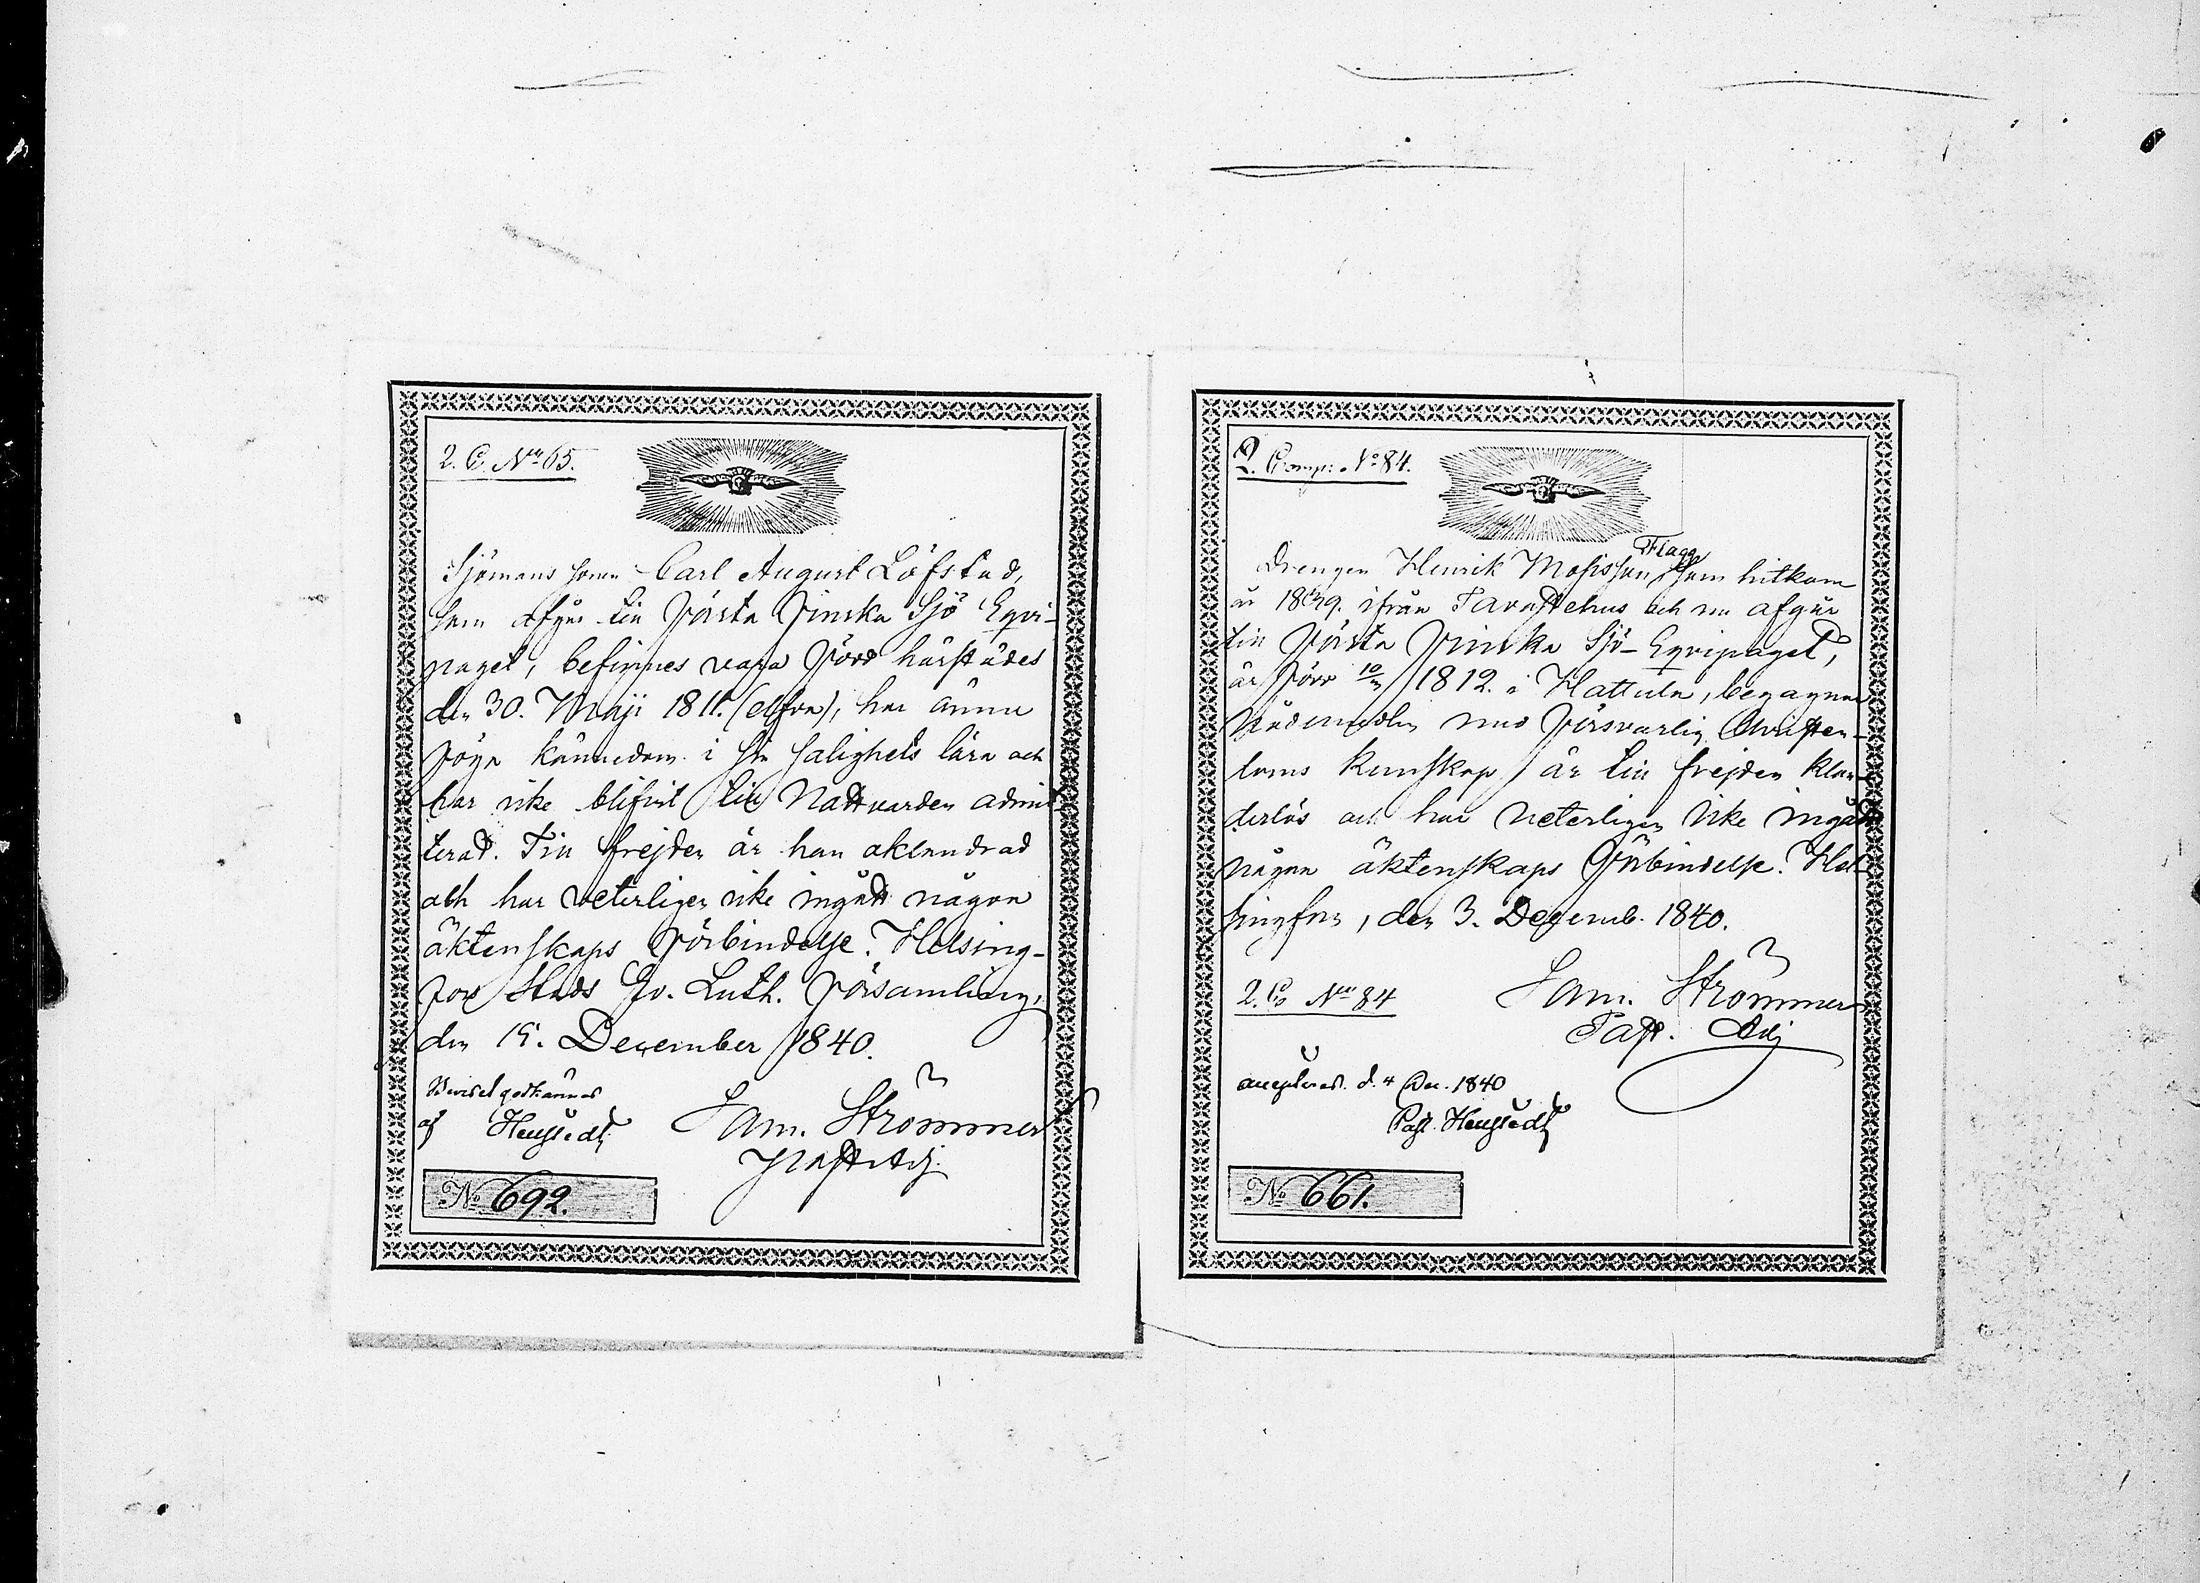 2. C. No 65.
Sjömans sonen Carl August Löfstad,
som afgår till första finska Sjö Eqvi-
paget, befinnes vara född härstädes
den 30. Maji 1811. har ännu
föga kännedom i sin salighets lära och
har icke blifvit till Nattvarden admit-
terad. Till frejden är han oklandrad
och har veterligen icke ingått någon
äktenskaps förbindelse. Helsing-
fors Stads Ev. Luth. församling,
den 15. December 1840.
Beviset godkännes
af Heugstedt
Sam. Strömmer
Past. Adj.
No 692.
2. Comp: No 84.
Drengen Henrik Mosisson Flagg, som hitkom
år 1839. ifrån Tavastehus och nu afgår
till första finska Sjö-Eqvipaget,
är född 10/3 1812. i Hattula, begagnar
Nådemedlen med försvarlig Christen-
doms kunskap, är till frejden klan-
derlös och har veterligen icke ingått
någon äktenskaps förbindelse. Hel-
singfors, den 3. Decemb. 1840.
2. Co No 84
Sam. Strömmer
Past. Adj
accepteras. d. 4 Dec. 1840
Past. Heugstedt
No 661.